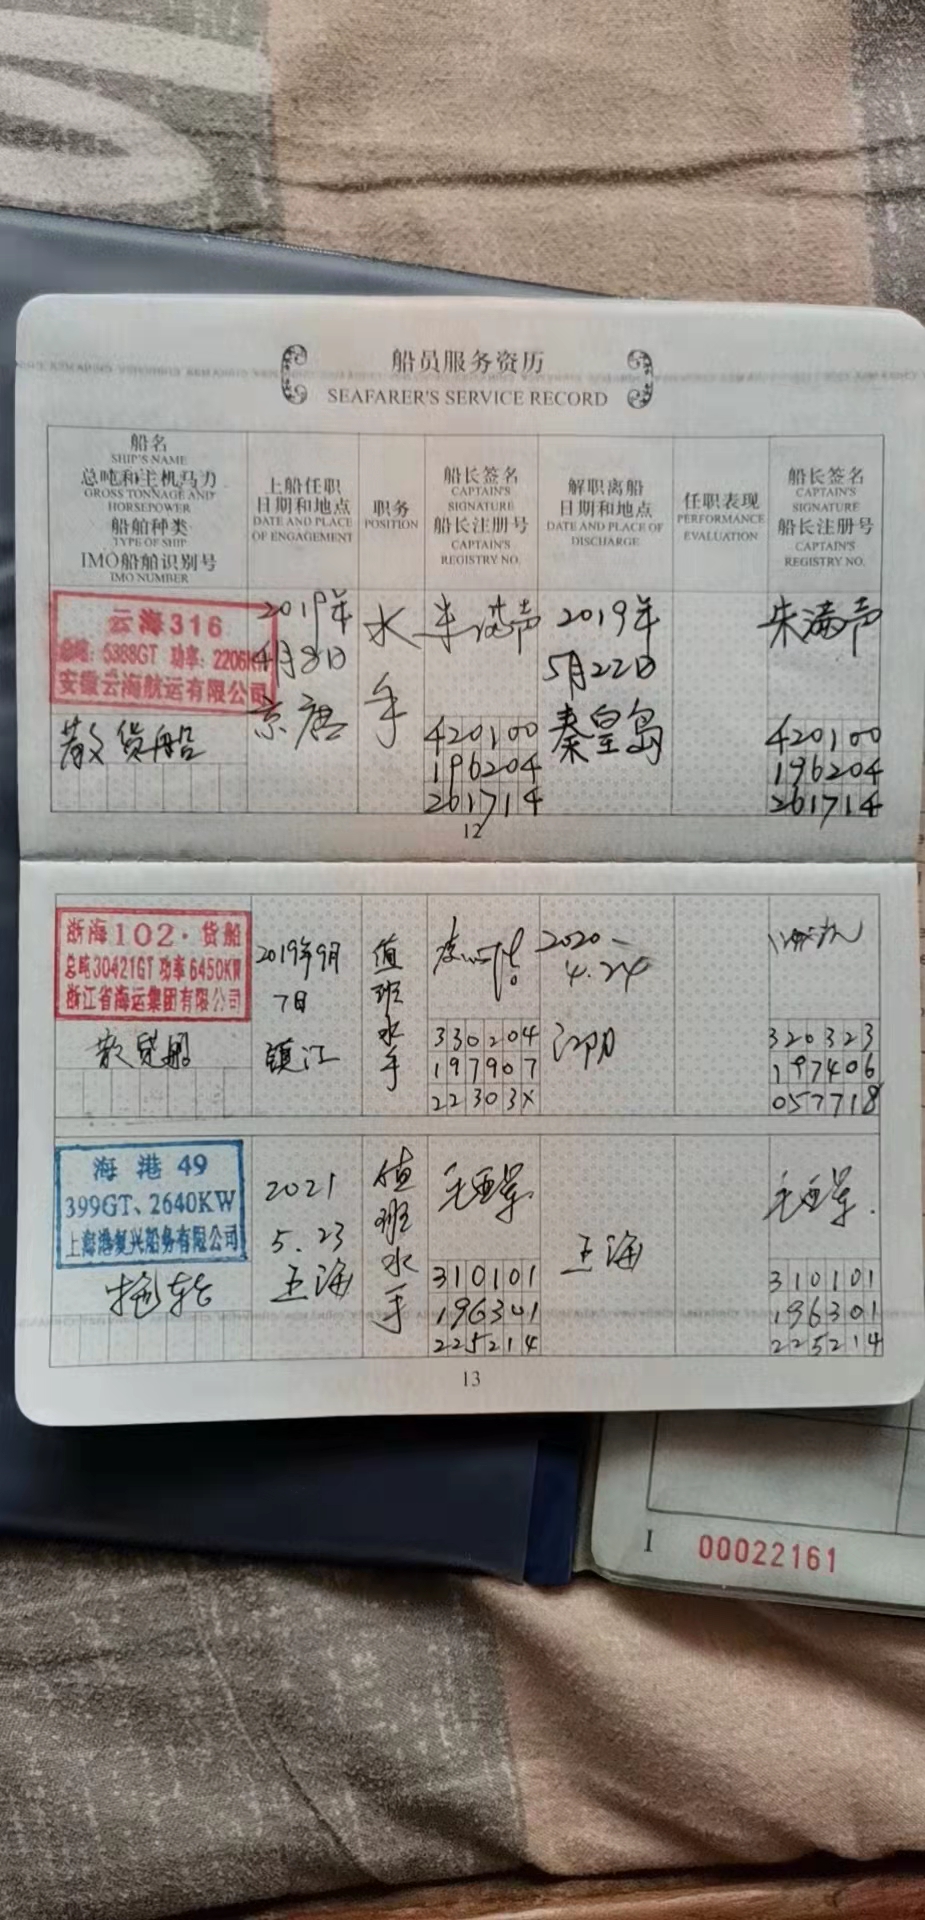 船员服务资历
SEAFARER'S SERVICE RECORD
船名
SHIP'S NAME
总吨和主机马力
GROSS TONNAGE AND
HORSEPOWER
船舶种类
TYPE OF SHIP
IMO船舶识别号
IMO NUMBER
上船任职
日期和地点
DATE AND PLACE
OF ENGAGEMENT
职务
POSITION
船长签名
CAPTAIN'S
SIGNATURE
船长注册号
CAPTAIN'S
REGISTRY NO.
解职离船
日期和地点
DATE AND PLACE OF
DISCHARGE
任职表现
PERFORMANCE
EVALUATION
船长签名
CAPTAIN'S
SIGNATURE
船长注册号
CAPTAIN'S
REGISTRY NO.
云海316
总吨：5388GT 功率：2206KW
安徽云海航运有限公司
散货船
2019年
4月8日
京唐
水
手
朱满声
420100
196204
261714
2019年
5月22日
秦皇岛
朱满声
420100
196204
261714
12
浙海102·货船
总吨30421GT 功率6450KW
浙江省海运集团有限公司
散货船
2019年9月
7日
镇江
值
班
水
手
330204
197907
22303X
2020
4.24
江阴
320323
197406
057718
海港 49
399GT、2640KW
上海港复兴船务有限公司
拖轮
2021
5.23
上海
值
班
水
手
310101
196301
225214
上海
310101
196301
225214
13
I 00022161